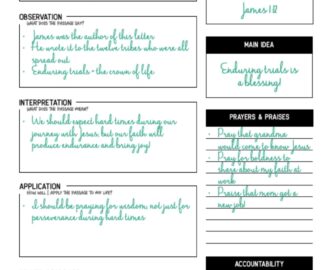 OBSERVATION
WHAT DOES THE PASSAGE SAY?
• James was the author of this letter
• He wrote it to the twelve tribes who were all
spread out
• Enduring trials = the crown of life
INTERPRETATION
WHAT DOES THE PASSAGE MEAN?
• We should expect hard times during our
journey with Jesus, but our faith will
produce endurance and bring joy!
APPLICATION
HOW WILL I APPLY THE PASSAGE TO MY LIFE?
• I should be praying for wisdom, not just for
perseverance during hard times
James 1:12
MAIN IDEA
Enduring trials is
a blessing!
PRAYERS & PRAISES
• Pray that grandma
would come to know Jesus
• Pray for boldness to
share about my faith at
work
• Praise that mom got a
new job!
ACCOUNTABILITY